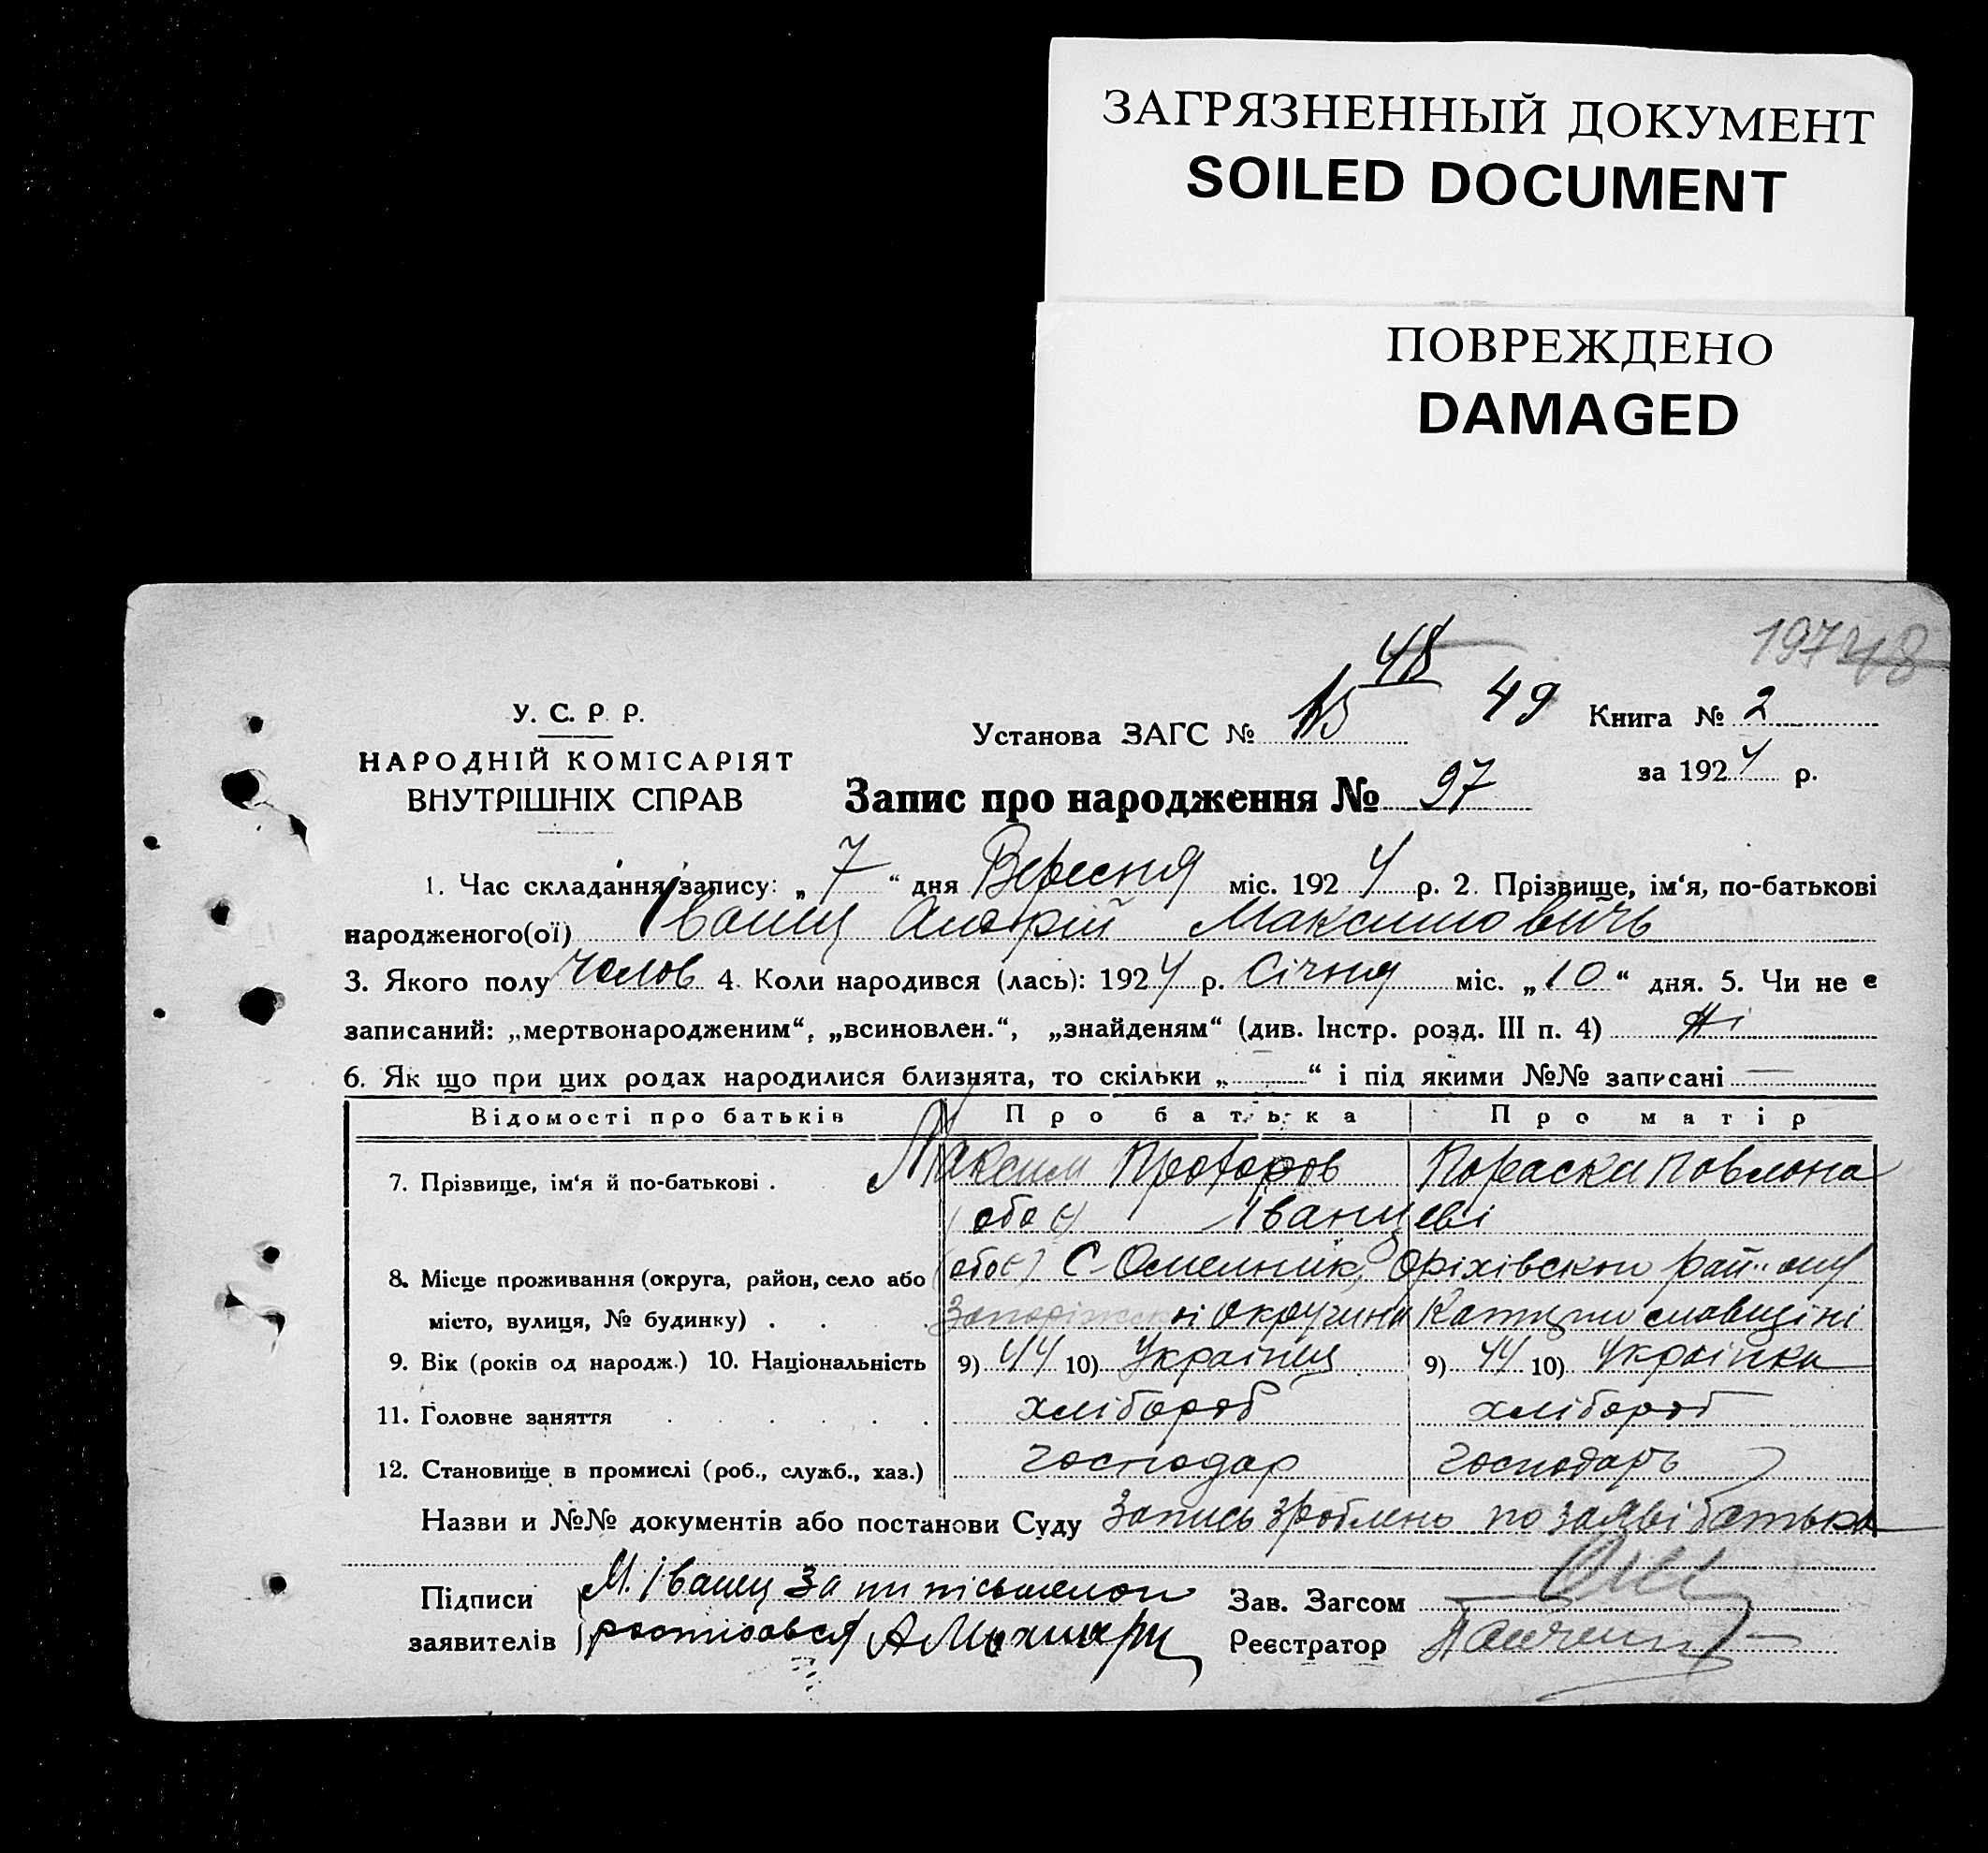 ЗАГРЯЗНЕННЫЙ ДОКУМЕНТ
SOILED DOCUMENT
ПОВРЕЖДЕНО
DAMAGED
197 48
48
У. С. Р. Р.
Установа ЗАГС № 15 49 Книга № 2
НАРОДНІЙ КОМІСАРІЯТ
за 1924 р.
ВНУТРІШНІХ СПРАВ
Запис про народження № 97
1. Час складання запису: „7“ дня Вересня міс. 1924 р. 2. Прізвище, ім‘я, по-батькові
народженого(ої) Іванец Андрій Максимовичь
3. Якого полу Чолов 4. Коли народився (лась): 1924 р. Січня міс. „10“ дня. 5. Чи не є
записаний: „мертвонародженим“, „всиновлен.“, „знайденям“ (див. Інстр. розд. III п. 4) Ні
6. Як що при цих родах народилися близнята, то скільки „—“ і під якими №№ записані —
Відомості про батьків Про батька Про матір
7. Прізвище, ім‘я й по-батькові . Максим Прохоров Пораска Повлона
(обоє) Іванцеві
8. Місце проживання (округа, район, село або (обоє) С-Омельник, Оріхівскои району
місто, вулиця, № будинку) . . . Запоріжскоі округини
9. Вік (років од народж.) 10. Національність 9) 44 10) Українец 9) 44 10) Українка
11. Головне заняття . . . . . . хлібороб хлібороб
12. Становище в промислі (роб., служб., хаз.) господар господарь
Назви и №№ документів або постанови Суду Запись зроблено по заяві батька
Підписи М. Іванец За ни письменои Зав. Загсом
заявителів росписався Реєстратор